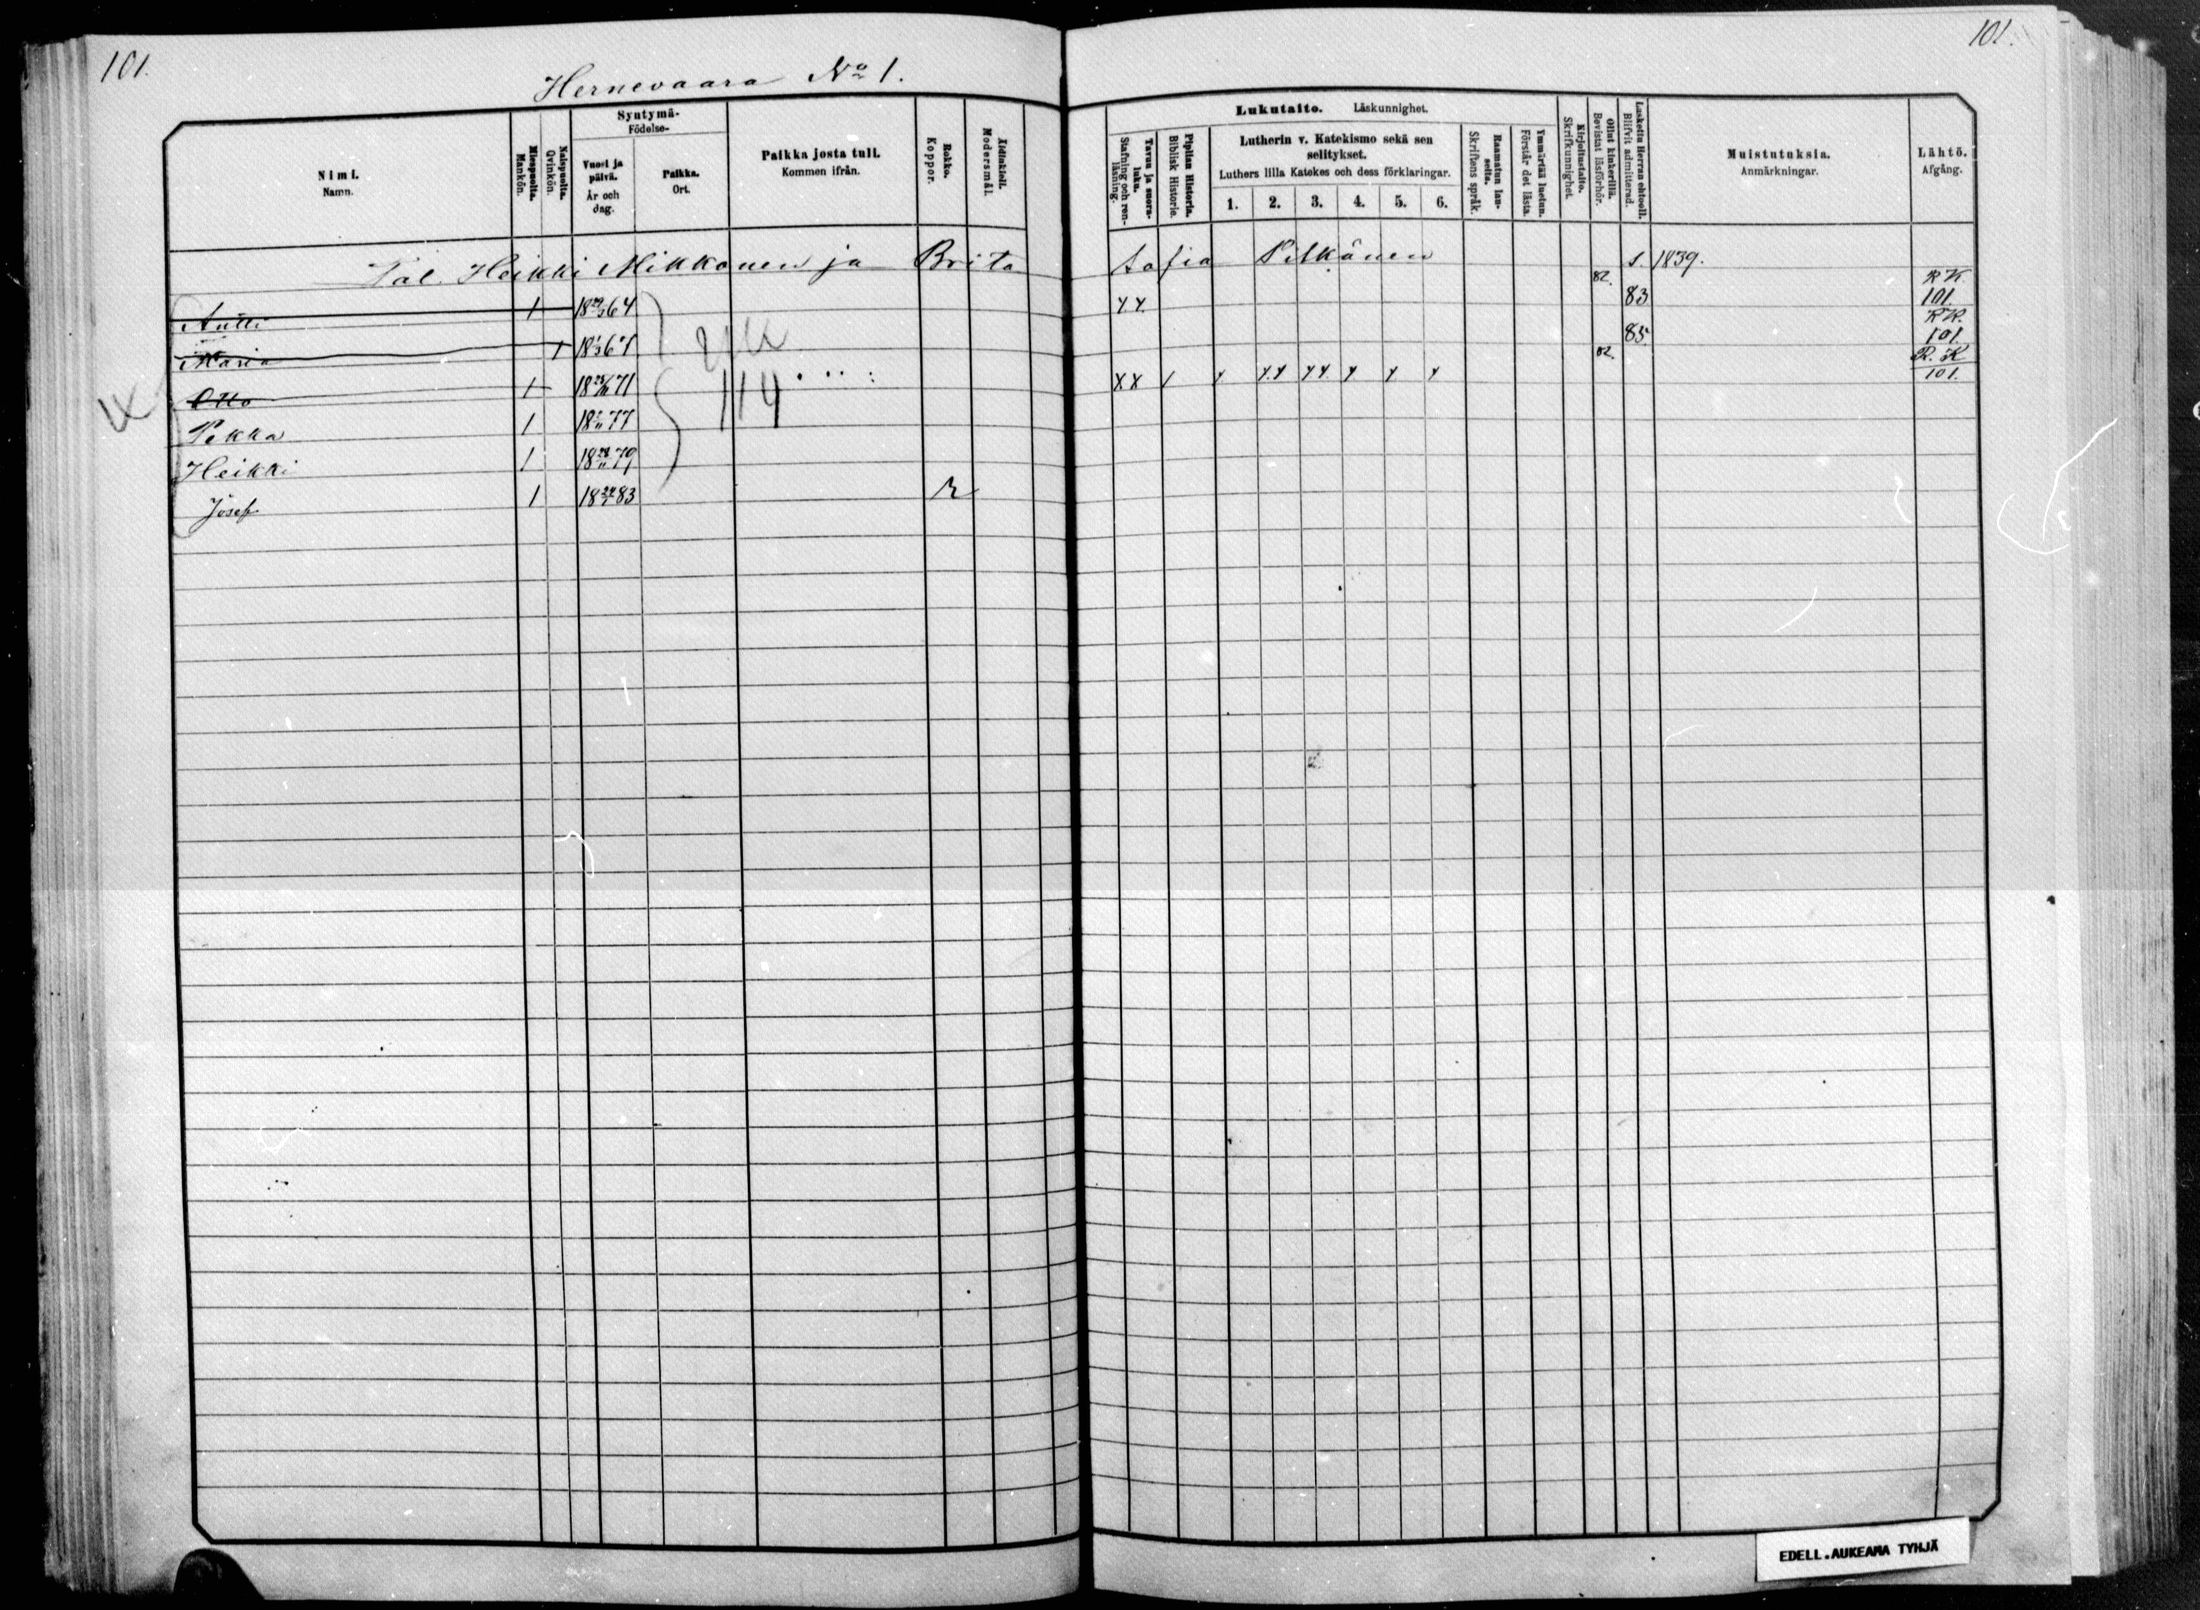 101.
101.
Hernevaara No 1.
Nimi.
Namn.
Miespuolta.
Mankön.
Naispuolta.
Qvinkön.
Syntymä-
Födelse-
Vuosi ja
päivä.
År och
dag.
Paikka.
Ort.
Paikka josta tuli.
Kommen ifrån.
Rokko.
Koppor.
Äidinkieli.
Modersmål.
Lukutaito. Läskunnighet.
Tavuu ja suora-
luku.
Stafning och ren-
läsning.
Piplian Historia.
Biblisk Historie.
Lutherin v. Katekismo sekä sen
selitykset.
Luthers lilla Katekes och dess förklaringar.
1. 2. 3. 4. 5. 6.
Raamatun lau-
seita.
Skriftens språk.
Ymmärtää luetun.
Förstår det lästa.
Kirjoitustaito.
Skrifkunnighet.
Ollut kinkerillä.
Bevistat läsförhör.
Laskettu Herran ehtooll.
Blifvit admitterad.
Muistutuksia.
Anmärkningar.
Lähtö.
Afgång.
Heikki Mikkonen ja Brita Sofia Pitkänen s. 1839.
Antti 1 18 64 x x. 82. 83 RK 101.
Maria 1 18 67 85. RK. 101.
Otto 1 18 71 x x 1 x x.x x x. x x x 82. R.K 101.
Pekka 1 18 77
114
Heikki 1 18 79
Josef 1 18 83
EDELL.AUKEAMA TYHJÄ